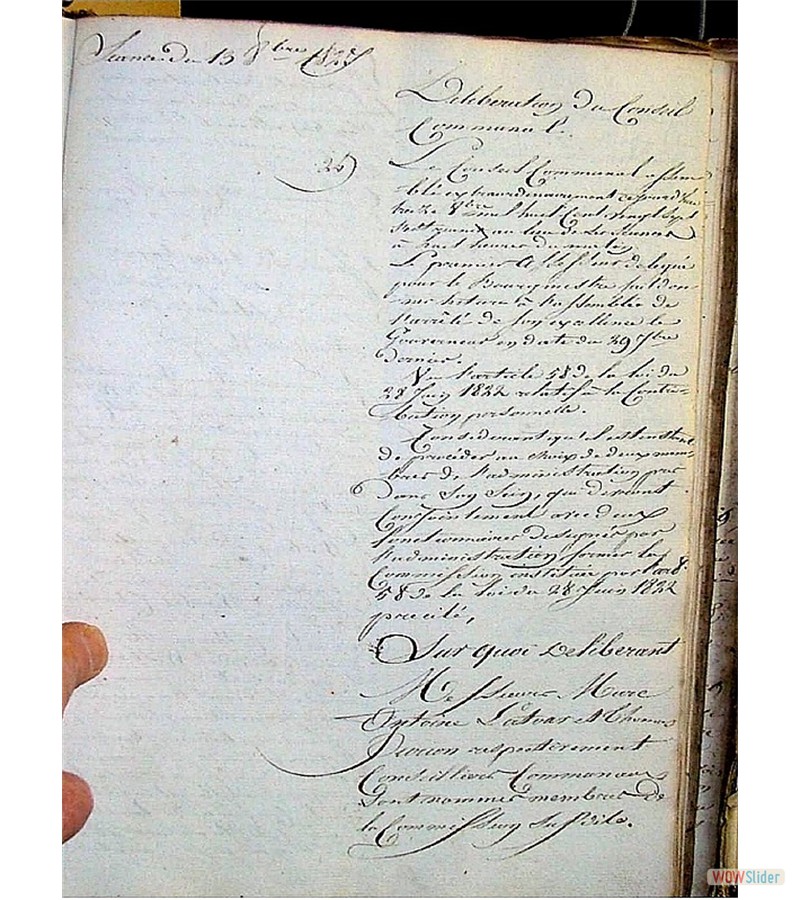 Séance du 13 8bre 1827
Délibération du Conseil
Communal.
24
Le Conseil Communal assem
blé extraordinairement ce jourd'hui
treize 8bre mil huit Cent vingt sept
s'est réuni au lieu de ses séances
à huit heures du matin
Le premier assesseur délégué
pour le Bourgmestre fait don-
ner lecture à l'assemblée de
l'arrêté de son excellence le
Gouverneur en date du 29 7bre
dernier.
Vu l'article 58 de la loi du
28 Juin 1822 relatif à la Contri-
bution personnelle.
Considérant qu'il est instant
de procéder au choix de deux mem-
bres de l'administration pris
dans son sein, qui devront
Conjointement avec deux
fonctionnaires désignés par
l'administration former la
Commission instituée par l'art
58 de la loi du 28 Juin 1822
précité,
Sur quoi Délibérant
Messieurs Marc
Antoine et Thomas
respectivement
Conseillers Communaux
sont nommés membres de
la Commission susdite.
WOWSlider